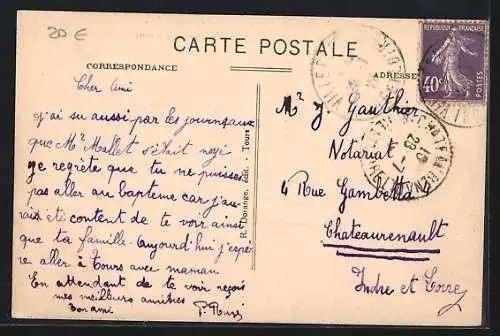 20 €
CARTE POSTALE
CORRESPONDANCE
ADRESSE
REPUBLIQUE FRANÇAISE
40c
POSTES
Cher Ami
j'ai su aussi par les journeaux
que Mr Mallet s'était noyé
je regrète que tu ne puisses
pas aller au bapteme car j'au-
rais été content de te voir ainsi
que ta famille. Aujourd'hui j'espè
re aller à Tours avec maman
En attendant de te voir reçois
mes meilleurs amitiés
Bon ami
P.
Dorange, édit. - Tours
Mr J Gauthier
Notariat
4 Rue Gambetta 4
Chateaurenault
Indre et Loire